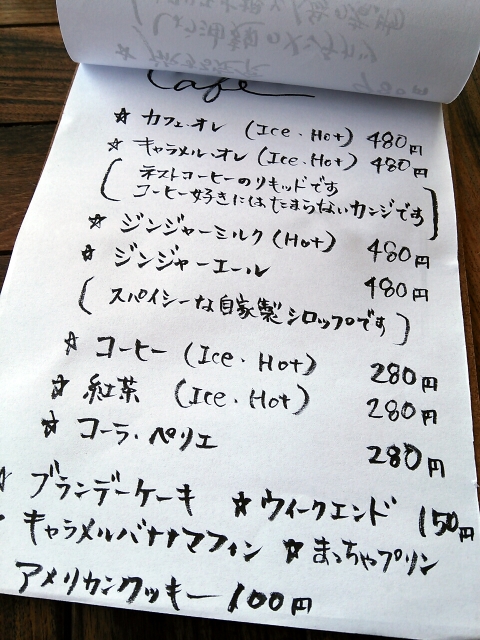 Cafe
☆ カフェ・オレ (Ice・Hot) 480円
☆ キャラメル・オレ (Ice・Hot) 480円
(ネストコーヒーのリキッドです
コーヒー好きにはたまらないカンジです)
☆ ジンジャーミルク (Hot) 480円
☆ ジンジャーエール 480円
(スパイシーな自家製シロップです)
☆ コーヒー (Ice・Hot) 280円
☆ 紅茶 (Ice・Hot) 280円
☆ コーラ・ペリエ 280円
☆ ブランデーケーキ ☆ ウィークエンド 150円
キャラメルバナナマフィン ☆ まっちゃプリン
アメリカンクッキー 100円